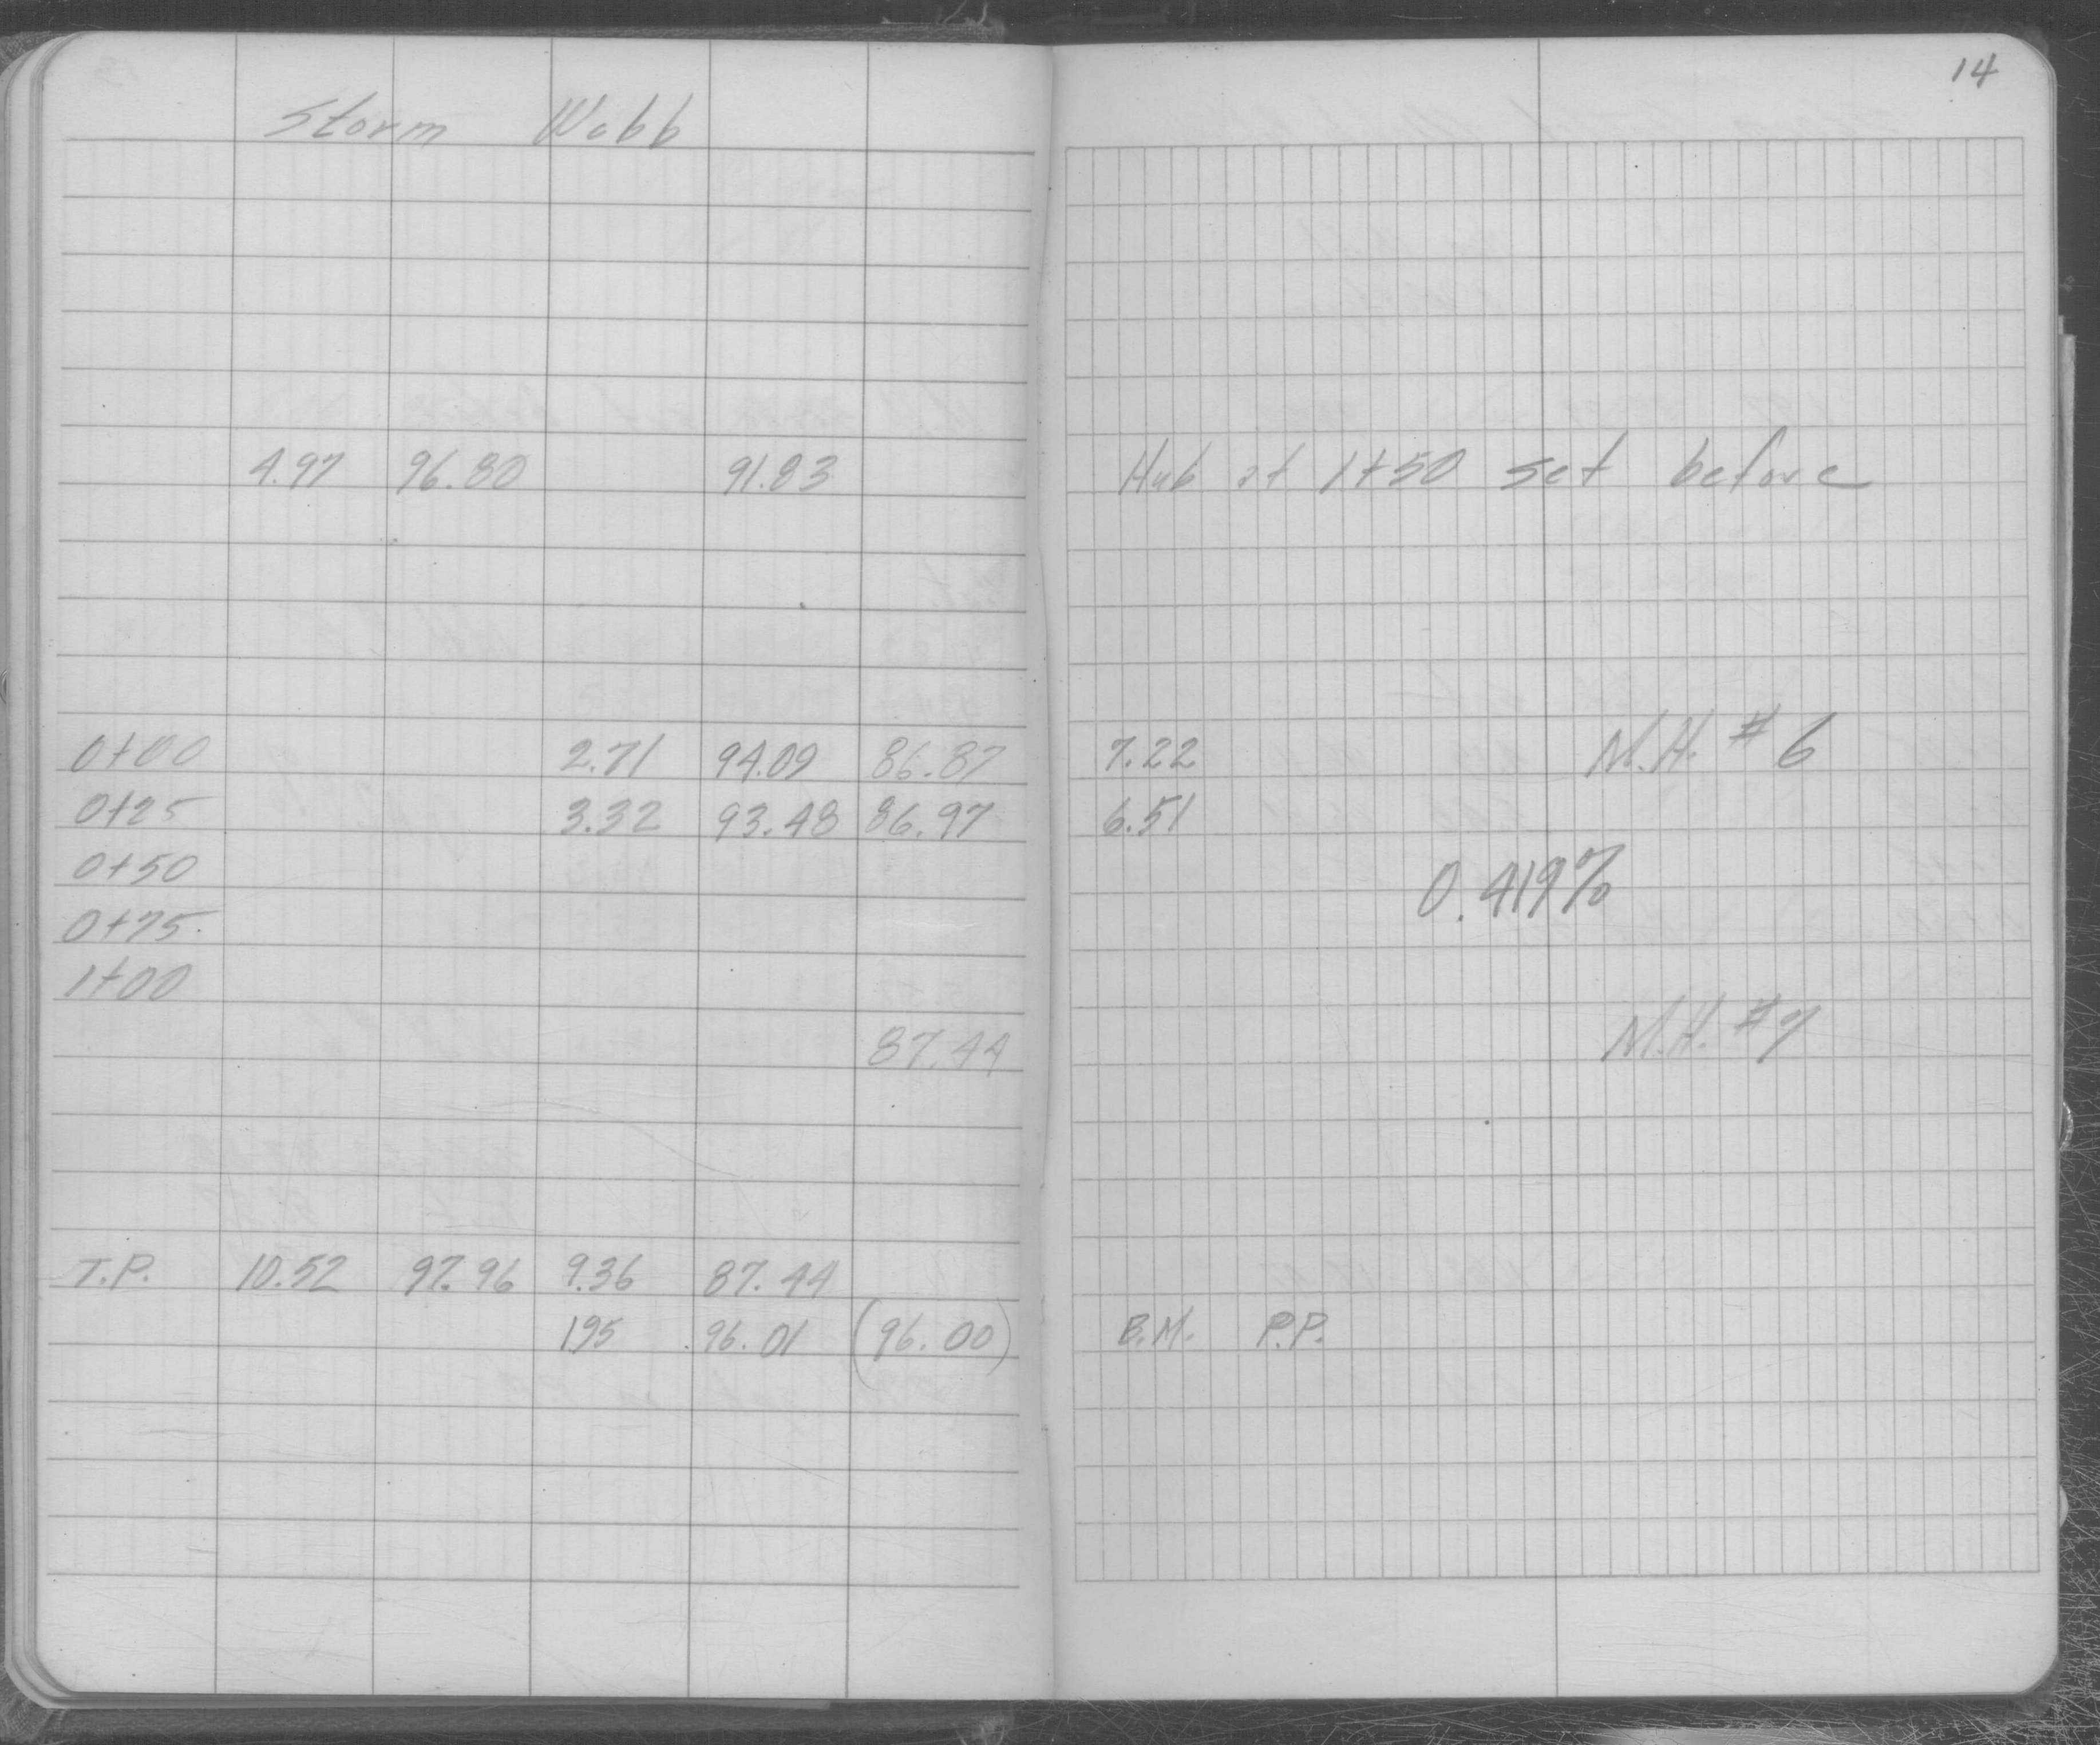 14
Storm Webb
4.97 96.80 91.83 Hub at 1+50 set before
0+00 2.71 94.09 86.87 7.22 M.H. #6
0+25 3.32 93.48 86.97 6.51
0+50 0.419%
0+75
1+00
87.44 M.H. #7
T.P. 10.52 97.96 9.36 87.44
195 96.01 (96.00) B.M. P.P.